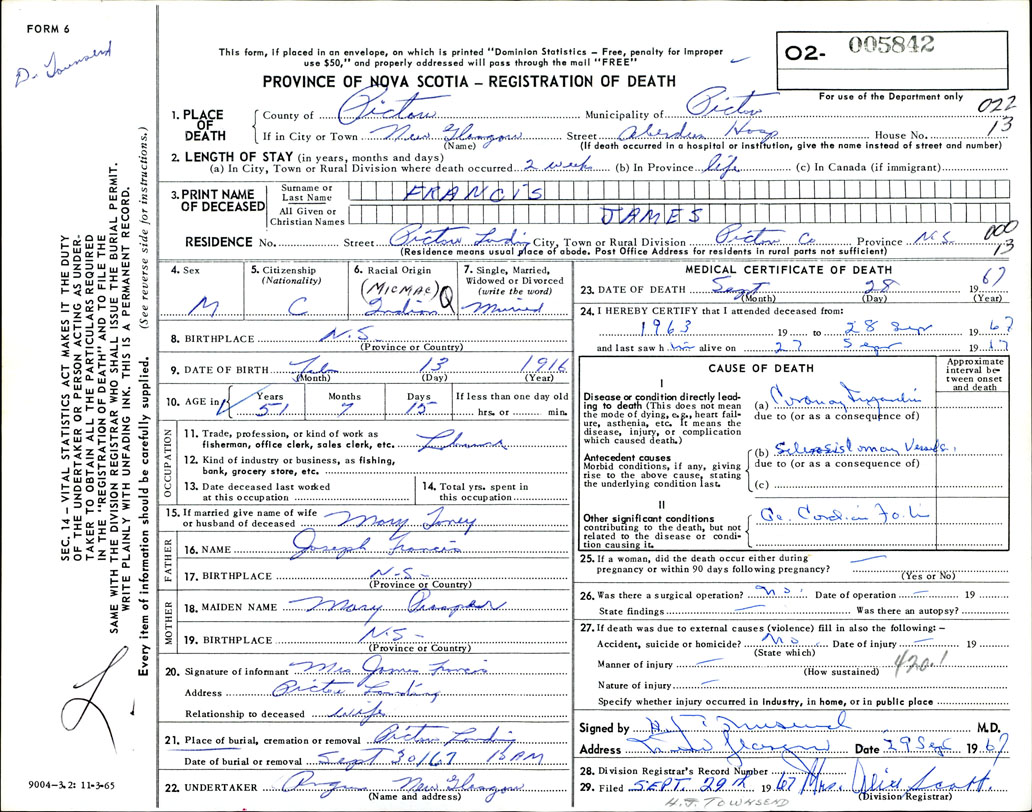 FORM 6
D. Townsend
This form, if placed in an envelope, on which is printed "Dominion Statistics – Free, penalty for improper
use $50," and properly addressed will pass through the mail "FREE"
PROVINCE OF NOVA SCOTIA – REGISTRATION OF DEATH
O2- 005842
For use of the Department only
022
13
1. PLACE OF DEATH
County of Pictou Municipality of Pictou
If in City or Town New Glasgow Street Aberdeen Hosp House No.
(Name) (If death occurred in a hospital or institution, give the name instead of street and number)
2. LENGTH OF STAY (in years, months and days)
(a) In City, Town or Rural Division where death occurred 2 week (b) In Province life (c) In Canada (if immigrant)
3. PRINT NAME OF DECEASED
Surname or Last Name FRANCIS
All Given or Christian Names JAMES
RESIDENCE No. Street Pictou Landing City, Town or Rural Division Pictou Co Province N.S.
000
13
(Residence means usual place of abode. Post Office Address for residents in rural parts not sufficient)
4. Sex
M
5. Citizenship
(Nationality)
C
6. Racial Origin
(MICMAC)
Indian
7. Single, Married,
Widowed or Divorced
(write the word)
Married
8. BIRTHPLACE N.S.
(Province or Country)
9. DATE OF BIRTH Feb 13 1916
(Month) (Day) (Year)
10. AGE in Years Months Days If less than one day old
51 7 15 hrs. or min.
OCCUPATION
11. Trade, profession, or kind of work as
fisherman, office clerk, sales clerk, etc.
12. Kind of industry or business, as fishing,
bank, grocery store, etc.
13. Date deceased last worked
at this occupation
14. Total yrs. spent in
this occupation
15. If married give name of wife
or husband of deceased Mary Toney
FATHER
16. NAME Joseph Francis
17. BIRTHPLACE N.S.
(Province or Country)
MOTHER
18. MAIDEN NAME Mary Prosper
19. BIRTHPLACE N.S.
(Province or Country)
20. Signature of informant Mrs James Francis
Address Pictou Landing
Relationship to deceased wife
21. Place of burial, cremation or removal Pictou Landing
Date of burial or removal Sept 30/67 AM
22. UNDERTAKER New Glasgow
(Name and address)
MEDICAL CERTIFICATE OF DEATH
23. DATE OF DEATH Sept 28 1967
(Month) (Day) (Year)
24. I HEREBY CERTIFY that I attended deceased from:
1963 19 to 28 Sep 1967
and last saw him alive on 27 Sep 1967
CAUSE OF DEATH
Approximate interval between onset and death
I
Disease or condition directly leading to death (This does not
mean the mode of dying, e.g., heart failure, asthenia, etc. It means the
disease, injury, or complication
which caused death.)
(a) Coronary
due to (or as a consequence of)
Antecedent causes
Morbid conditions, if any, giving
rise to the above cause, stating
the underlying condition last.
(b)
due to (or as a consequence of)
(c)
II
Other significant conditions
contributing to the death, but not
related to the disease or condition causing it.
25. If a woman, did the death occur either during
pregnancy or within 90 days following pregnancy? –
(Yes or No)
26. Was there a surgical operation? No. Date of operation – 19
State findings – Was there an autopsy?
27. If death was due to external causes (violence) fill in also the following: –
Accident, suicide or homicide? No Date of injury – 19
(State which)
Manner of injury – 420.1
(How sustained)
Nature of injury –
Specify whether injury occurred in Industry, in home, or in public place
Signed by H. J. Townsend M.D.
Address New Glasgow Date 29 Sep 1967
28. Division Registrar's Record Number
29. Filed SEPT. 29th 1967 Mrs. Alice Scott
(Division Registrar)
H.J. TOWNSEND
SEC. 14 – VITAL STATISTICS ACT MAKES IT THE DUTY
OF THE UNDERTAKER OR PERSON ACTING AS UNDERTAKER TO OBTAIN ALL THE PARTICULARS REQUIRED
IN THE "REGISTRATION OF DEATH" AND TO FILE THE
SAME WITH THE DIVISION REGISTRAR WHO SHALL ISSUE THE BURIAL PERMIT.
WRITE PLAINLY WITH UNFADING INK. THIS IS A PERMANENT RECORD.
Every item of information should be carefully supplied. (See reverse side for instructions.)
9004-3.2: 11-3-65